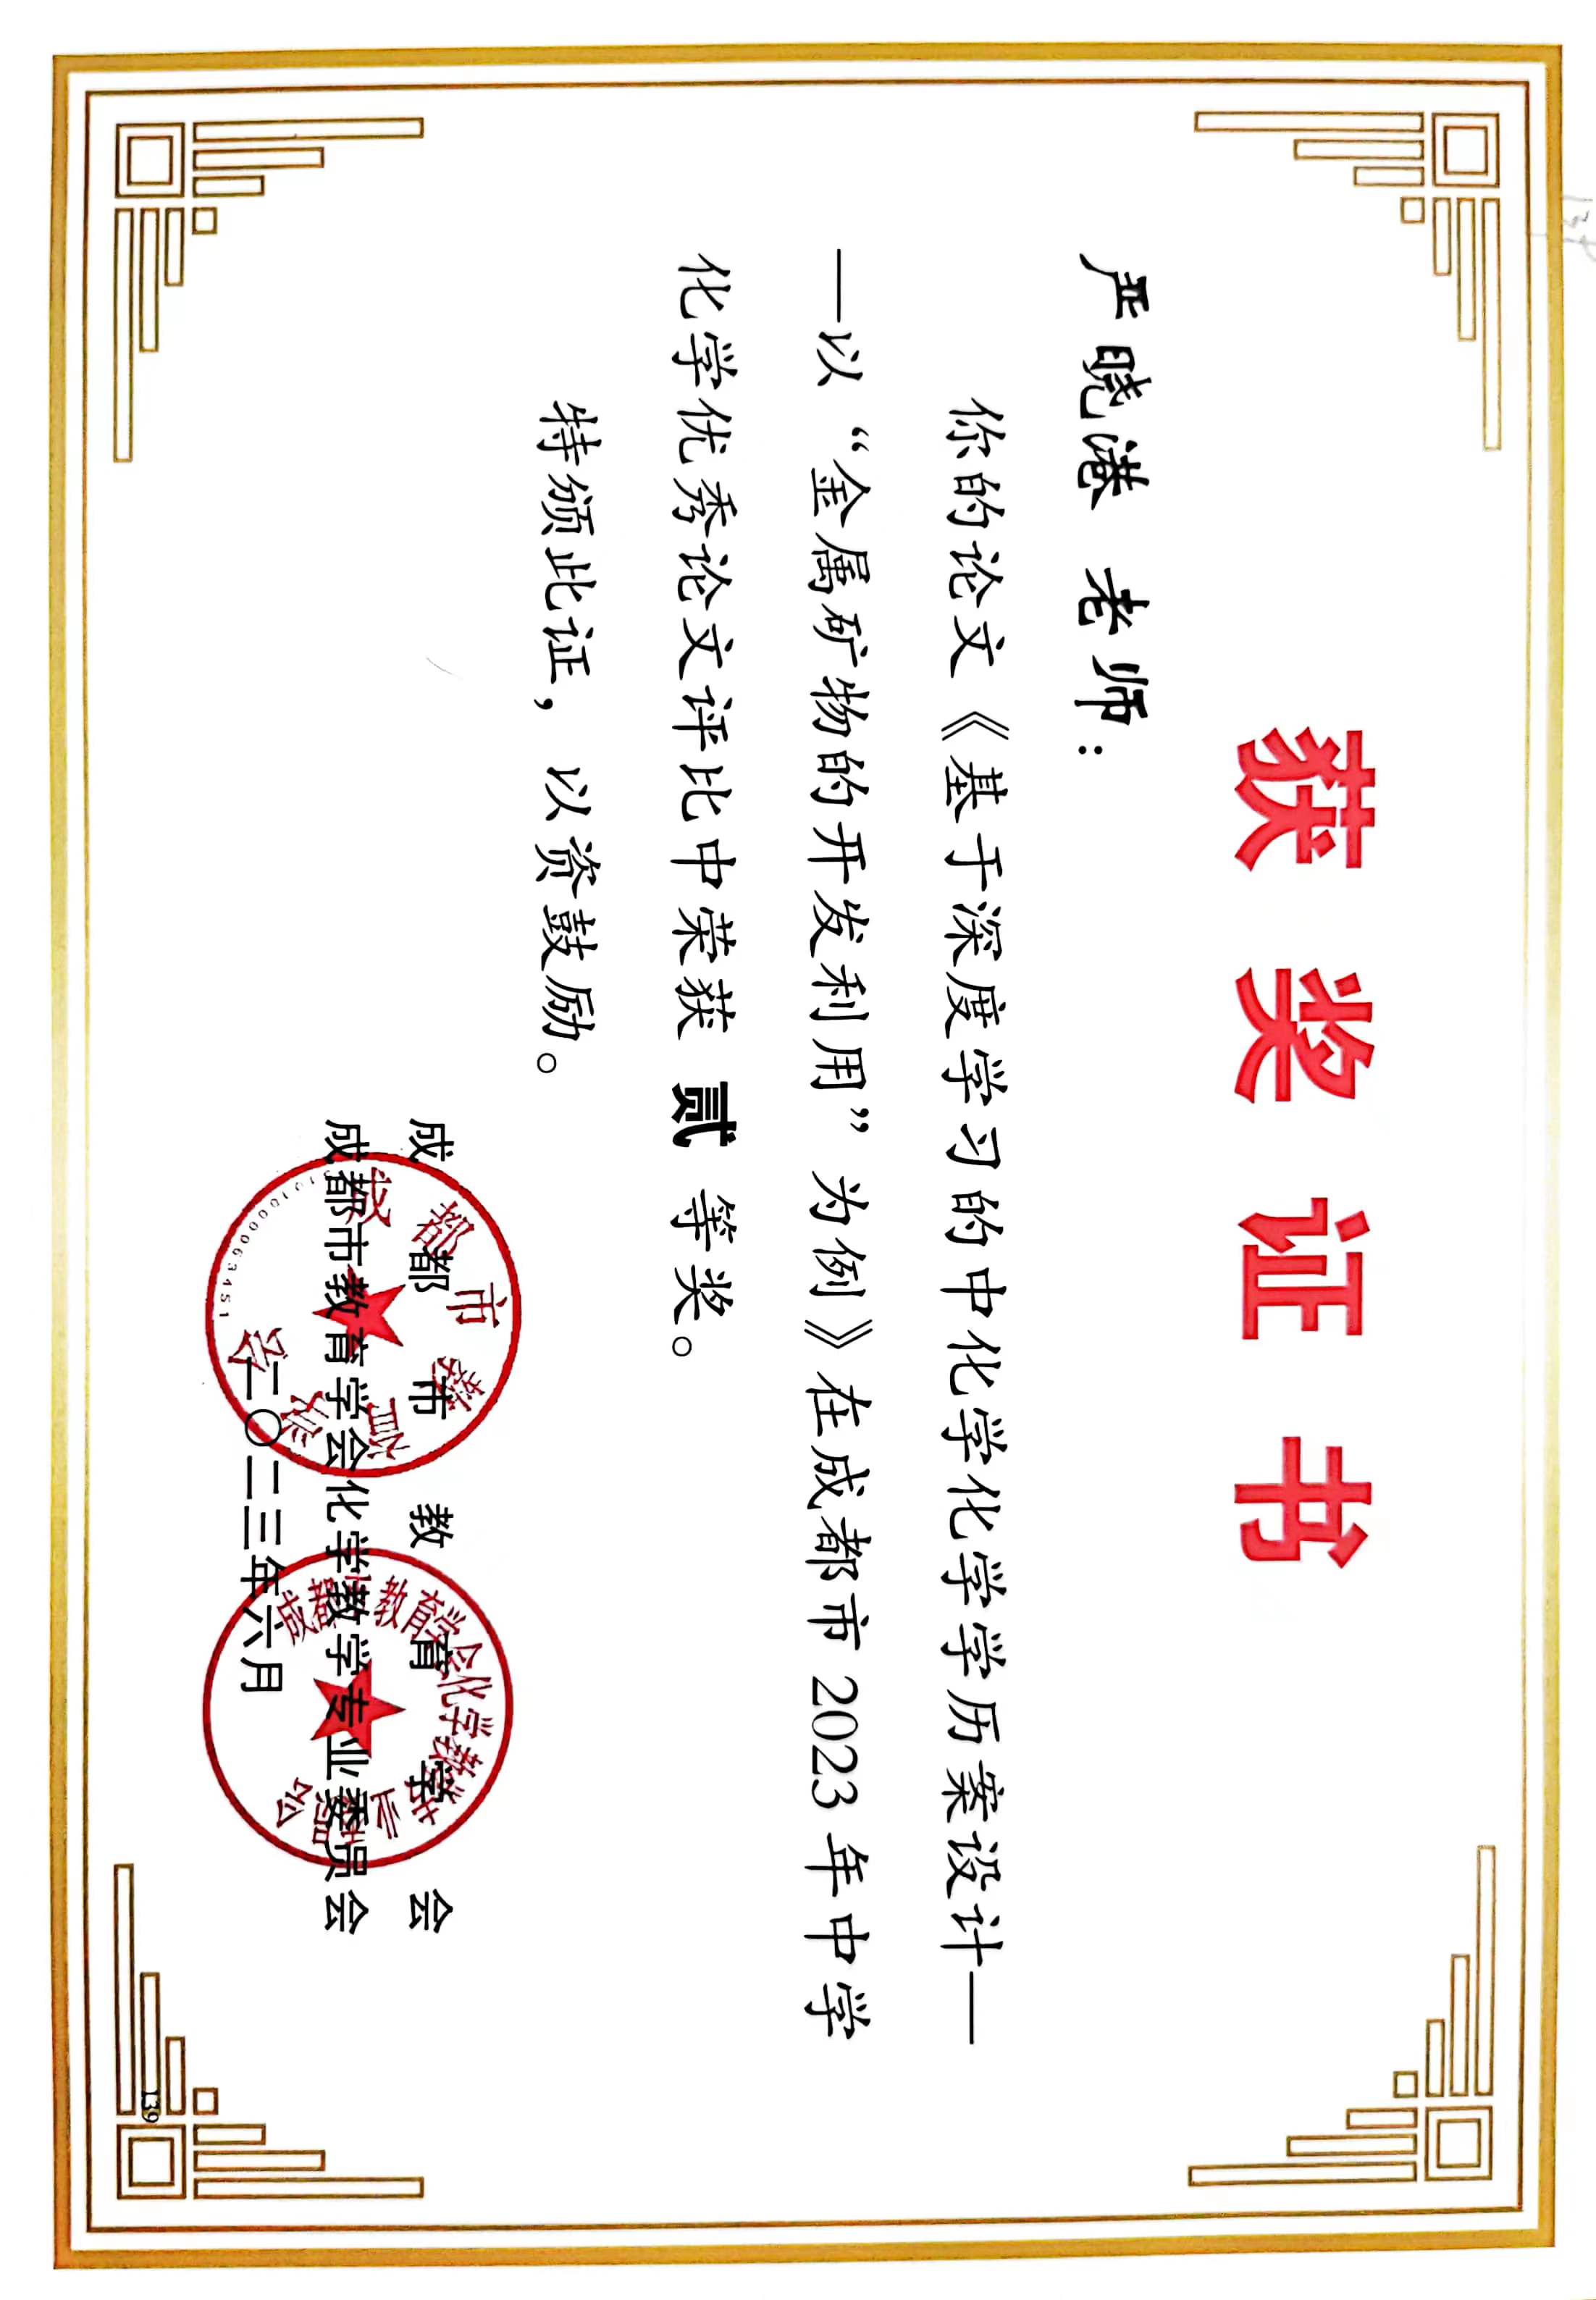 获奖证书
严晓港 老师：
你的论文《基于深度学习的中化学化学学历案设计—
—以“金属矿物的开发利用”为例》在成都市 2023 年中学
化学优秀论文评比中荣获 贰 等奖。
特颁此证，以资鼓励。
成都市教育学会
成都市教育学会化学教学专业委员会
二〇二三年六月
成都市教育学会
成都市教育学会化学教学专业委员会
139